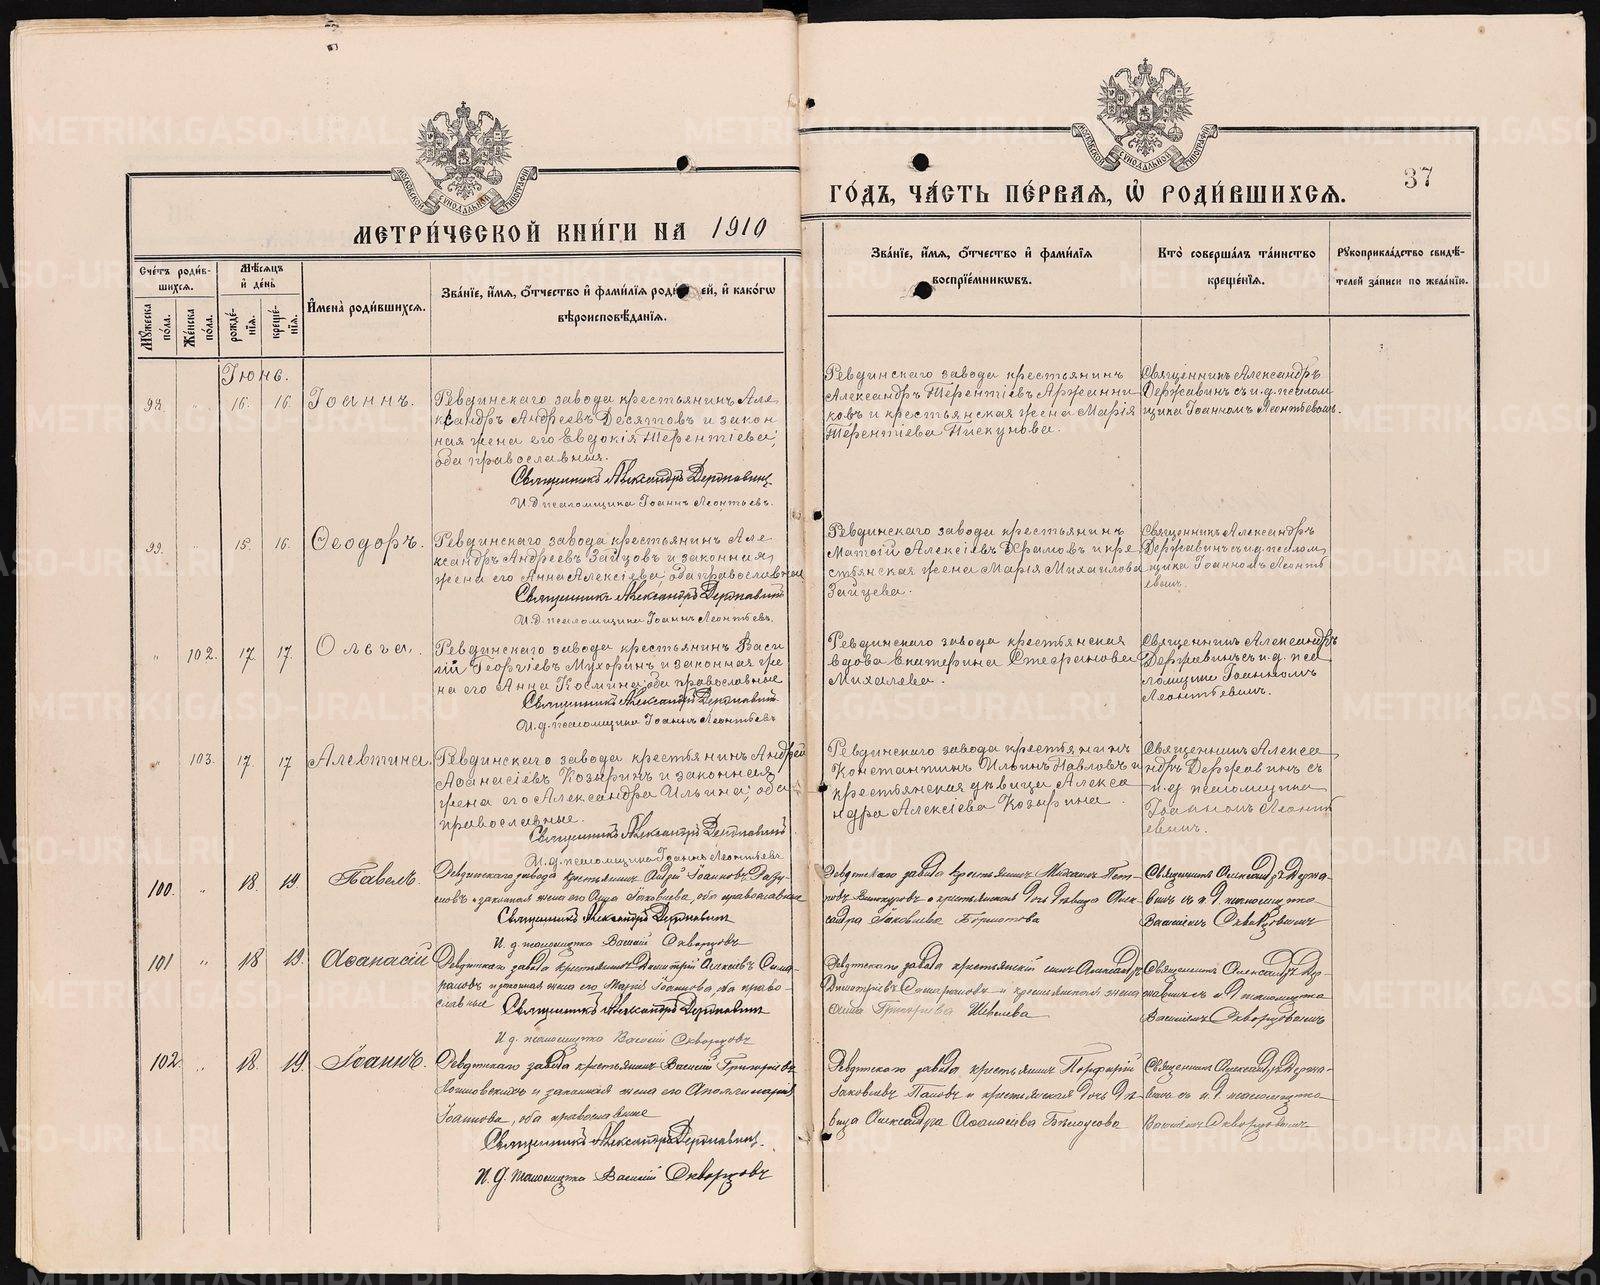 МЕТРИ́ЧЕСКОЙ КНИ́ГИ НА 1910
ГО́ДЪ, ЧА́СТЬ ПЕ́РВАЯ, Ѡ РОДИ́ВШИХСЯ.
37
Сче́тъ роди́в-
шихся.
Мѣ́сяцъ
и де́нь
Мꙋ́жеска по́ла.
Же́нска по́ла.
рожде́-
нїя.
креще́-
нїя.
Имена̀ роди́вшихся.
Зва́нїе, и́мя, о́тчество и фами́лїя роди ей, и како́гѡ
вѣроисповѣ́данїя.
Зва́нїе, и́мя, о́тчество и фами́лїя
воспрїе́мникѡвъ.
Кто̀ соверша́лъ та́инство
креще́нїя.
Рꙋкоприкла́дство свидѣ́-
телей за́писи по жела́нїю.
Іюнь.
98. " 16. 16. Іоаннъ.
Ревдинскаго завода крестьянинъ Але
ксандръ Андреевъ Десятовъ и закон
ная жена его Евдокія Терентіева,
оба православныя.
Священникъ Александръ Державинъ
И.д. псаломщика Іоаннъ Леонтьевъ.
Ревдинскаго завода крестьянинъ
Александръ Терентіевъ Аржанни
ковъ и крестьянская жена Марія
Терентіева Пискунова.
Священникъ Александръ
Державинъ съ и.д. псалом
щика Іоанномъ Леонтьевым.
99. 15. 16. Ѳеодоръ.
Ревдинскаго завода крестьянинъ Але
ксандръ Андреевъ Зайцовъ и законная
жена его Анна Алексіева, оба православныя
Священникъ Александръ Державинъ
И.д. псаломщика Іоаннъ Леонтьевъ.
Ревдинскаго завода крестьянинъ
Матѳій Алексіевъ Храмовъ и кре
стьянская жена Марія Михаилова
Зайцева.
Священникъ Александръ
Державинъ съ и.д. псалом
щика Іоанномъ Леонть
евым.
" 102. 17. 17. Ольга.
Ревдинскаго завода крестьянинъ Васи
лій Георгіевъ Мухоринъ и законная же
на его Анна Космина, оба православные
Священникъ Александръ Державинъ
И.д. псаломщика Іоаннъ Леонтьевъ
Ревдинскаго завода крестьянская
вдова Екатерина Стефанова
Михалева.
Священникъ Александръ
Державинъ съ и.д. пса
ломщика Іоанномъ
Леонтьевым.
" 103. 17. 17 Алевтина.
Ревдинскаго завода крестьянинъ Андрей
Аѳанасіевъ Козыринъ и законная
жена его Александра Ильина, оба
православные.
Священникъ Александръ Державинъ
И.д. псаломщика Іоаннъ Леонтьевъ
Ревдинскаго завода крестьянинъ
Константинъ Ильинъ Павловъ и
крестьянская дѣвица Алекса
ндра Алексіева Козырина.
Священникъ Алекса
ндръ Державинъ съ
и.д. псаломщика
Іоанномъ Леонть
евым.
100. " 18. 19. Павелъ.
Ревдинскаго завода крестьянинъ Андрей Іоанновъ
и законная жена его Іаковлева, оба православные
Священникъ Александръ Державинъ
И. д. псаломщика Василій Скворцовъ
Ревдинскаго завода крестьянинъ Михаилъ
Винокуровъ и крестьянская дочь дѣвица Алек-
сандра Іаковлева
Священникъ Александръ Держа-
винъ съ и. д. псаломщика
Василіемъ Скворцовымъ
101 " 18 19. Аѳанасій
Ревдинскаго завода крестьянинъ Димитрій Алексіевъ
и законная жена его Марія Іоаннова, оба право-
славные Священникъ Александръ Державинъ
И. д. псаломщика Василій Скворцовъ
Ревдинскаго завода крестьянскій сынъ Александръ
Димитріевъ и крестьянская жена
Анна Григоріева Шевелева
Священникъ Александръ Дер-
жавинъ съ и. д. псаломщика
Василіемъ Скворцовымъ
102. " 18. 19. Іоаннъ.
Ревдинскаго завода крестьянинъ Василій Григоріевъ
и законная жена его Аполлинарія
Іоаннова, оба православные
Священникъ Александръ Державинъ.
И. д. псаломщика Василій Скворцовъ
Ревдинскаго завода крестьянинъ Порфирій
Іаковлевъ Пановъ и крестьянская дочь дѣ-
вица Александра Аѳанасіева Бѣлоусова
Священникъ Александръ Держа-
винъ съ и. д. псаломщика
Василіемъ Скворцовымъ